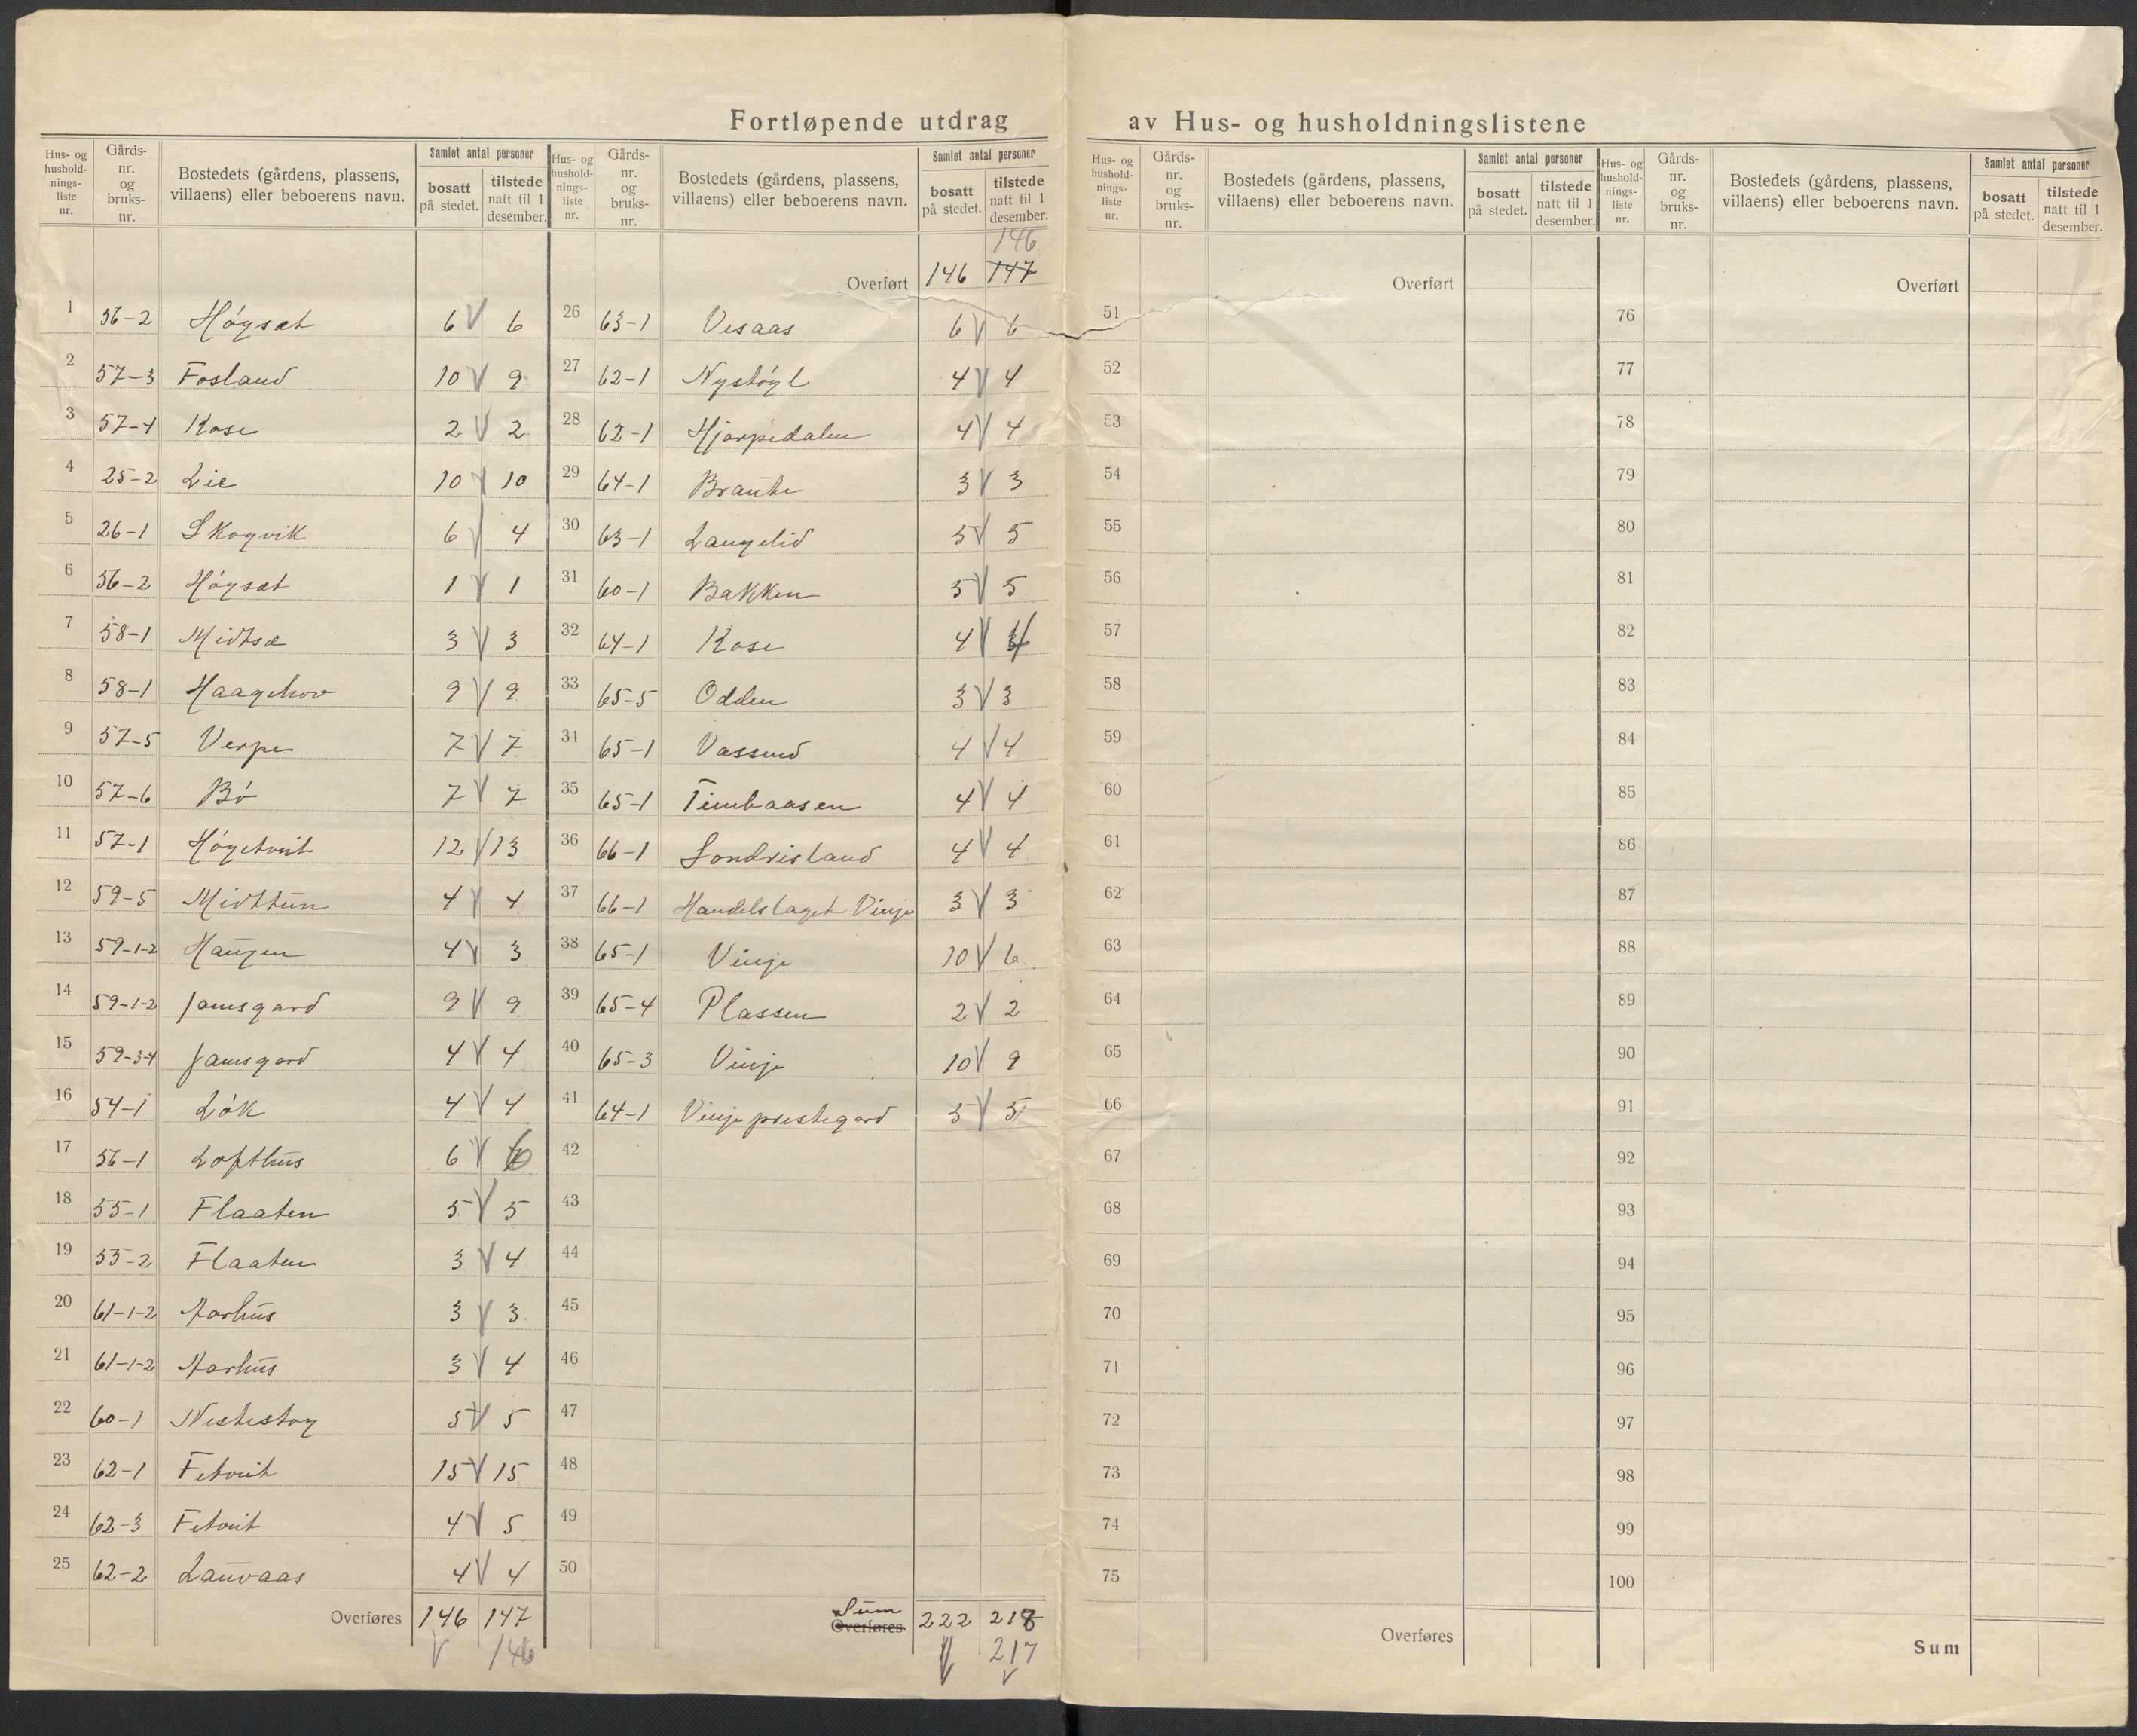 Fortløpende utdrag av Hus- og husholdningslistene
Hus- og hushold-nings-liste nr. Gårds-nr. og bruks-nr. Bostedets (gårdens, plassens, villaens) eller beboerens navn. Samlet antal personer bosatt på stedet. tilstede natt til 1 desember.
1 56-2 Høgsæt 6 6
2 57-3 Fosland 10 9
3 57-4 Kose 2 2
4 25-2 Lie 10 10
5 26-1 Skogvik 6 4
6 56-2 Høgsæt 1 1
7 58-1 Midtsæ 3 3
8 58-1 Haagehov 9 9
9 57-5 Verpe 7 7
10 57-6 Bø 7 7
11 57-1 Høgetveit 12 13
12 59-5 Midttun 4 4
13 59-1-2 Haugen 4 3
14 59-1-2 Jamsgard 9 9
15 59-3-4 Jamsgard 4 4
16 54-1 Løk 4 4
17 56-1 Lofthus 6 6
18 55-1 Flaaten 5 5
19 55-2 Flaaten 3 4
20 61-1-2 Aarhus 3 3
21 61-1-2 Aarhus 3 4
22 60-1 Nestestog 5 5
23 62-1 Fetveit 15 15
24 62-3 Fetveit 4 5
25 62-2 Lauvaas 4 4
Overføres 146 147
146
Hus- og hushold-nings-liste nr. Gårds-nr. og bruks-nr. Bostedets (gårdens, plassens, villaens) eller beboerens navn. Samlet antal personer bosatt på stedet. tilstede natt til 1 desember.
146
Overført 146 147
26 63-1 Vesaas 6 6
27 62-1 Nystøyl 4 4
28 62-1 Hjarpedalen 4 4
29 64-1 Braute 3 3
30 63-1 Langelid 5 5
31 60-1 Bakken 5 5
32 64-1 Kose 4 4
33 65-5 Odden 3 3
34 65-1 Vassend 4 4
35 65-1 Timbaasen 4 4
36 66-1 Sondresland 4 4
37 66-1 Handelslaget Vinje 3 3
38 65-1 Vinje 10 6
39 65-4 Plassen 2 2
40 65-3 Vinje 10 9
41 64-1 Vinje prestegard 5 5
42
43
44
45
46
47
48
49
50
Sum
Overføres 222 218
217
Hus- og hushold-nings-liste nr. Gårds-nr. og bruks-nr. Bostedets (gårdens, plassens, villaens) eller beboerens navn. Samlet antal personer bosatt på stedet. tilstede natt til 1 desember.
Overført
51
52
53
54
55
56
57
58
59
60
61
62
63
64
65
66
67
68
69
70
71
72
73
74
75
Overføres
Hus- og hushold-nings-liste nr. Gårds-nr. og bruks-nr. Bostedets (gårdens, plassens, villaens) eller beboerens navn. Samlet antal personer bosatt på stedet. tilstede natt til 1 desember.
Overført
76
77
78
79
80
81
82
83
84
85
86
87
88
89
90
91
92
93
94
95
96
97
98
99
100
Sum